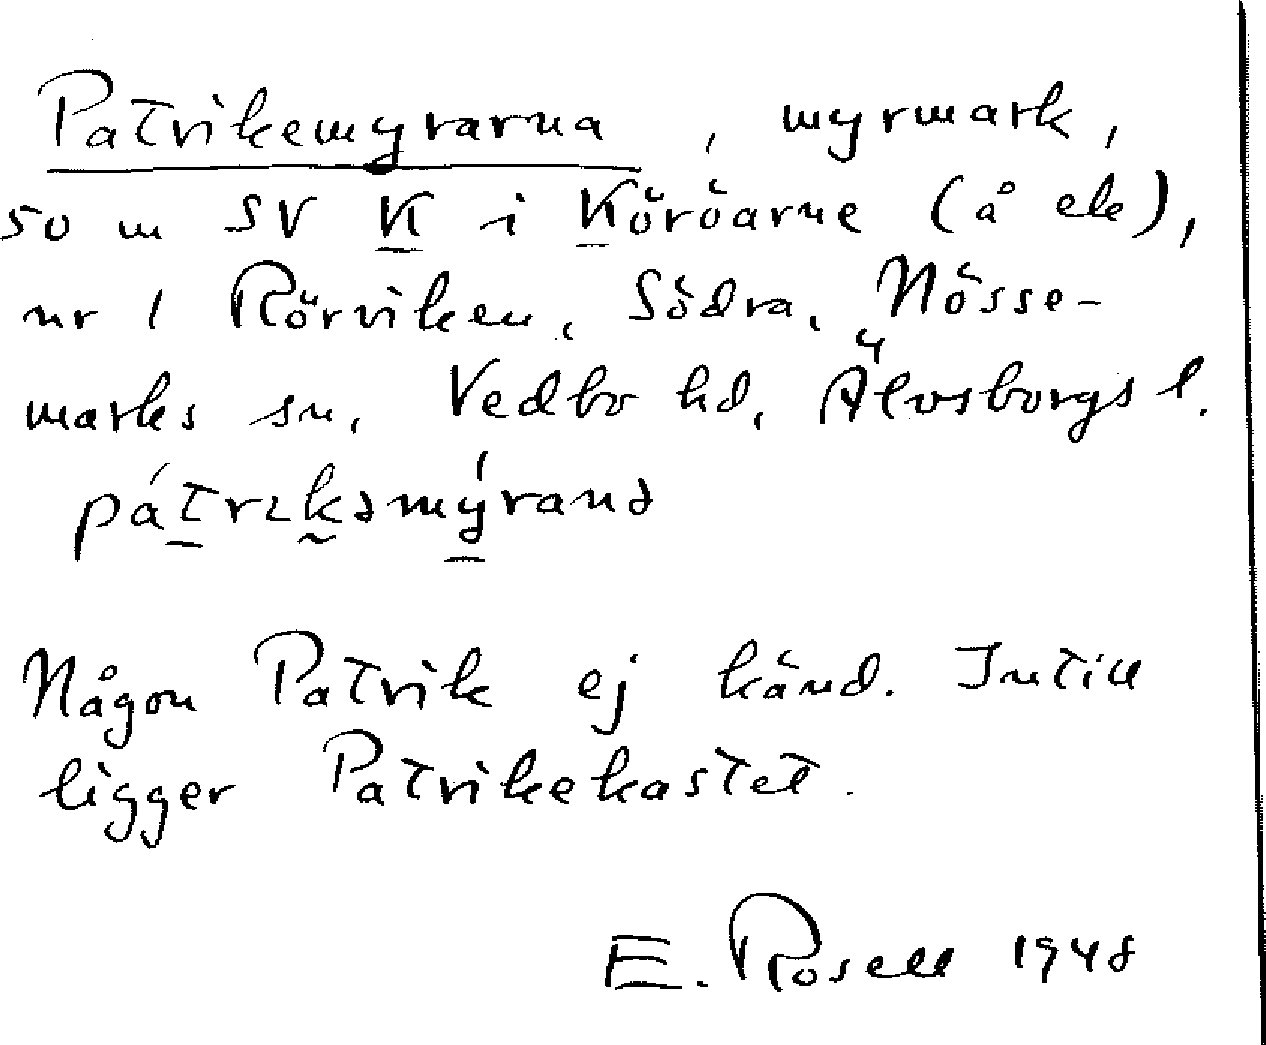 Patrikemyrarna, myrmark,
50 m SV K i Köröarne (å ek),
nr 1 Rörviken, Södra, Nösse-
marks sn, Vedbo hd, Älvsborgs l.
pátrıkəmýranə
Någon Patrik ej känd. Intill
ligger Patrikekastet.
E. Rosell 1948